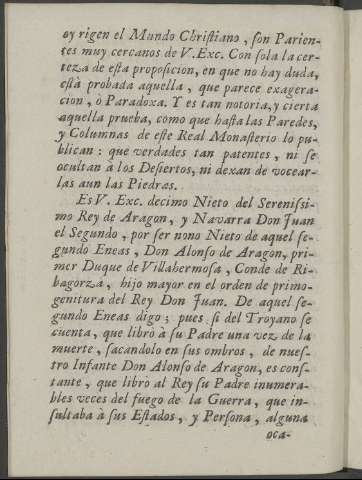 oy rigen el Mundo Chriſtiano, ſon Parien-
tes muy cercanos de V.Exc. Con ſola la cer-
teza de eſta propoſicion, en que no hay duda,
eſtà probada aquella, que parece exagera-
cion, ò Paradoxa. Y es tan notoria, y cierta
aquella prueba, como que haſta las Paredes,
y Columnas de eſte Real Monaſterio lo pu-
blican: que verdades tan patentes, ni ſe
ocultan à los Deſiertos, ni dexan de vocear-
las aun las Piedras.
Es V. Exc. decimo Nieto del Sereniſsi-
mo Rey de Aragon, y Navarra Don Juan
el Segundo, por ſer nono Nieto de aquel ſe-
gundo Eneas, Don Alonſo de Aragon, pri-
mer Duque de Villahermoſa, Conde de Ri-
bagorza, hijo mayor en el orden de primo-
genitura del Rey Don Juan. De aquel ſe-
gundo Eneas digo; pues ſi del Troyano ſe
cuenta, que librò à ſu Padre una vez de la
muerte, ſacandolo en ſus ombros, de nueſ-
tro Infante Don Alonſo de Aragon, es conſ-
tante, que librò al Rey ſu Padre inumera-
bles veces del fuego de la Guerra, que in-
ſultaba à ſus Eſtados, y Perſona, alguna
oca-